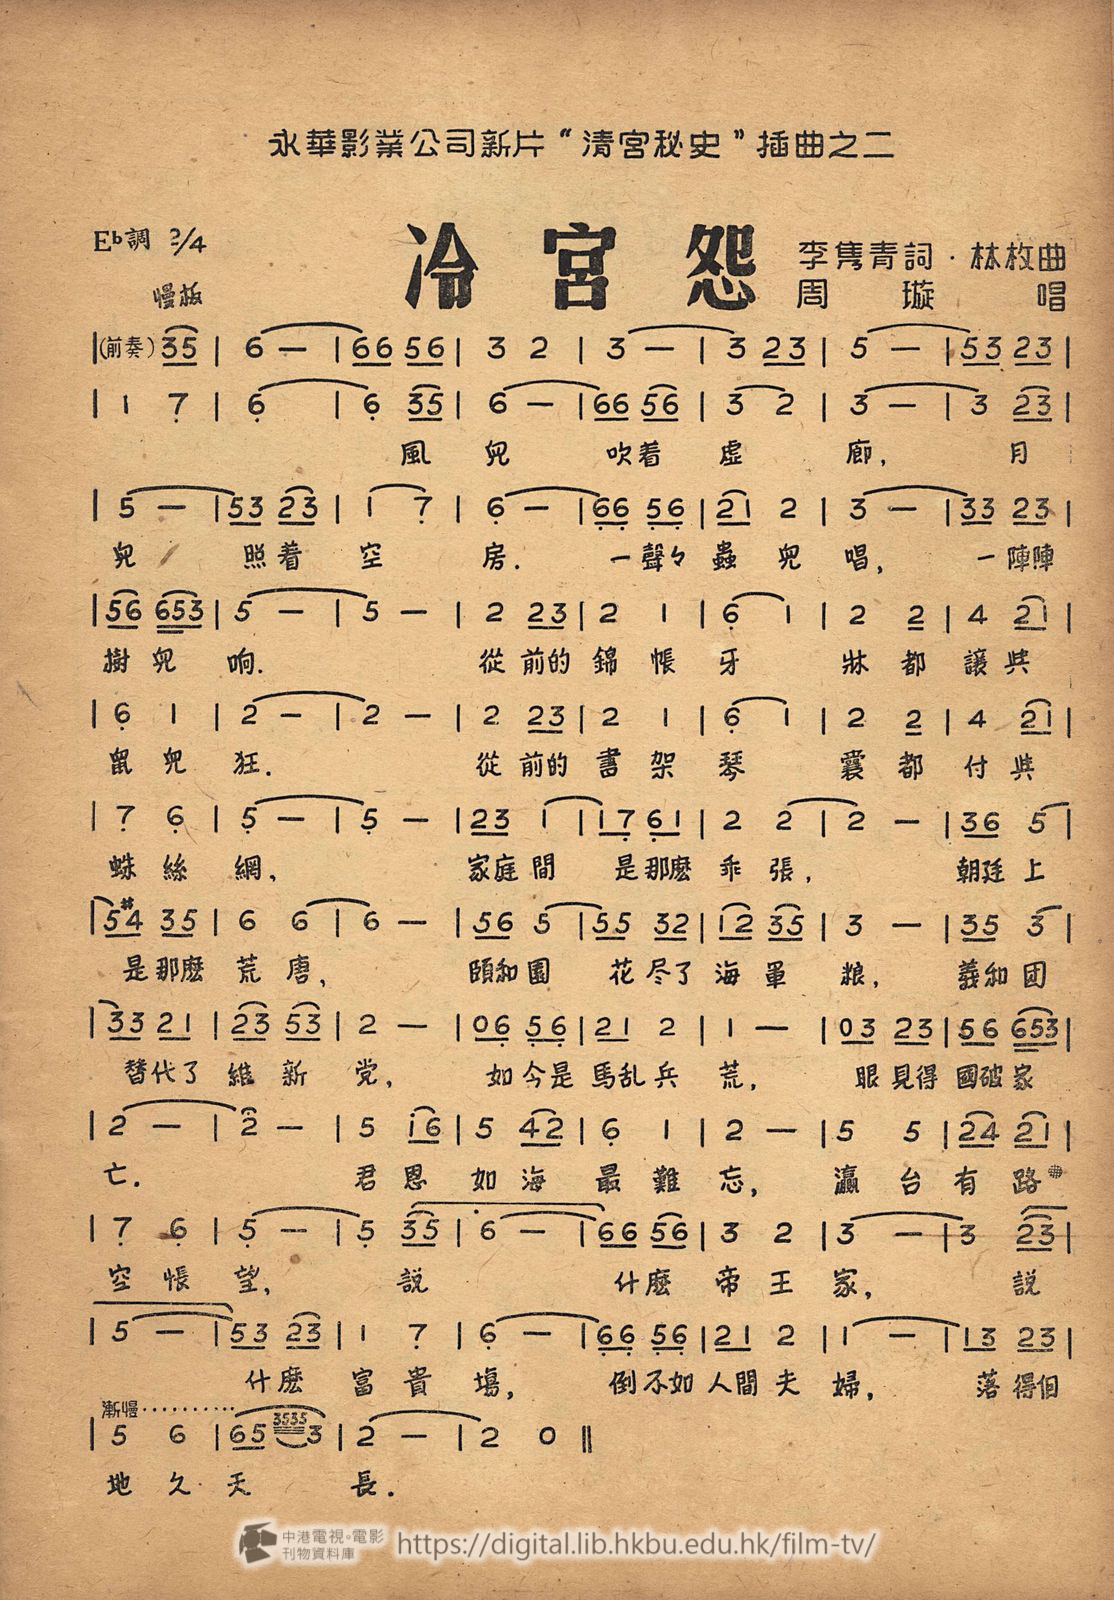 永華影業公司新片“清宮秘史”插曲之二
Eb調 2/4
慢板
冷宮怨
李雋青詞·林枚曲
周璇唱
|(前奏) 35 | 6 — | 66 56 | 3 2 | 3 — | 3 23 | 5 — | 53 23 |
| 1 7 | 6 | 6 35 | 6 — | 66 56 | 3 2 | 3 — | 3 23 |
風兒吹着虛廊，月
| 5 — | 53 23 | 1 7 | 6 — | 66 56 | 21 2 | 3 — | 33 23 |
兒照着空房．一聲々蟲兒唱，一陣陣
| 56 653 | 5 — | 5 — | 2 23 | 2 1 | 6 1 | 2 2 | 4 21 |
樹兒响．從前的錦帳牙牀都讓與
| 6 1 | 2 — | 2 — | 2 23 | 2 1 | 6 1 | 2 2 | 4 21 |
鼠兒狂．從前的書架琴囊都付與
| 7 6 | 5 — | 5 — | 23 1 | 17 61 | 2 2 | 2 — | 36 5 |
蛛絲網，家庭間是那麽乖張，朝廷上
| 5#4 35 | 6 6 | 6 — | 56 5 | 55 32 | 12 35 | 3 — | 35 3 |
是那麽荒唐，頤和園花尽了海軍粮，義和団
| 33 21 | 23 53 | 2 — | 06 56 | 21 2 | 1 — | 03 23 | 56 653 |
替代了維新党，如今是馬乱兵荒，眼見得國破家
| 2 — | 2 — | 5 16 | 5 42 | 6 1 | 2 — | 5 5 | 24 21 |
亡．君恩如海最難忘，瀛台有路
| 7 6 | 5 — | 5 35 | 6 — | 66 56 | 3 2 | 3 — | 3 23 |
空悵望，說什麽帝王家，説
| 5 — | 53 23 | 1 7 | 6 — | 66 56 | 21 2 | 1 — | 13 23 |
什麽富貴場，倒不如人間夫婦，落得個
漸慢………
| 5 6 | 65 3535 3 | 2 — | 2 0 ‖
地久天長．
中港電視·電影
刊物資料庫
https://digital.lib.hkbu.edu.hk/film-tv/